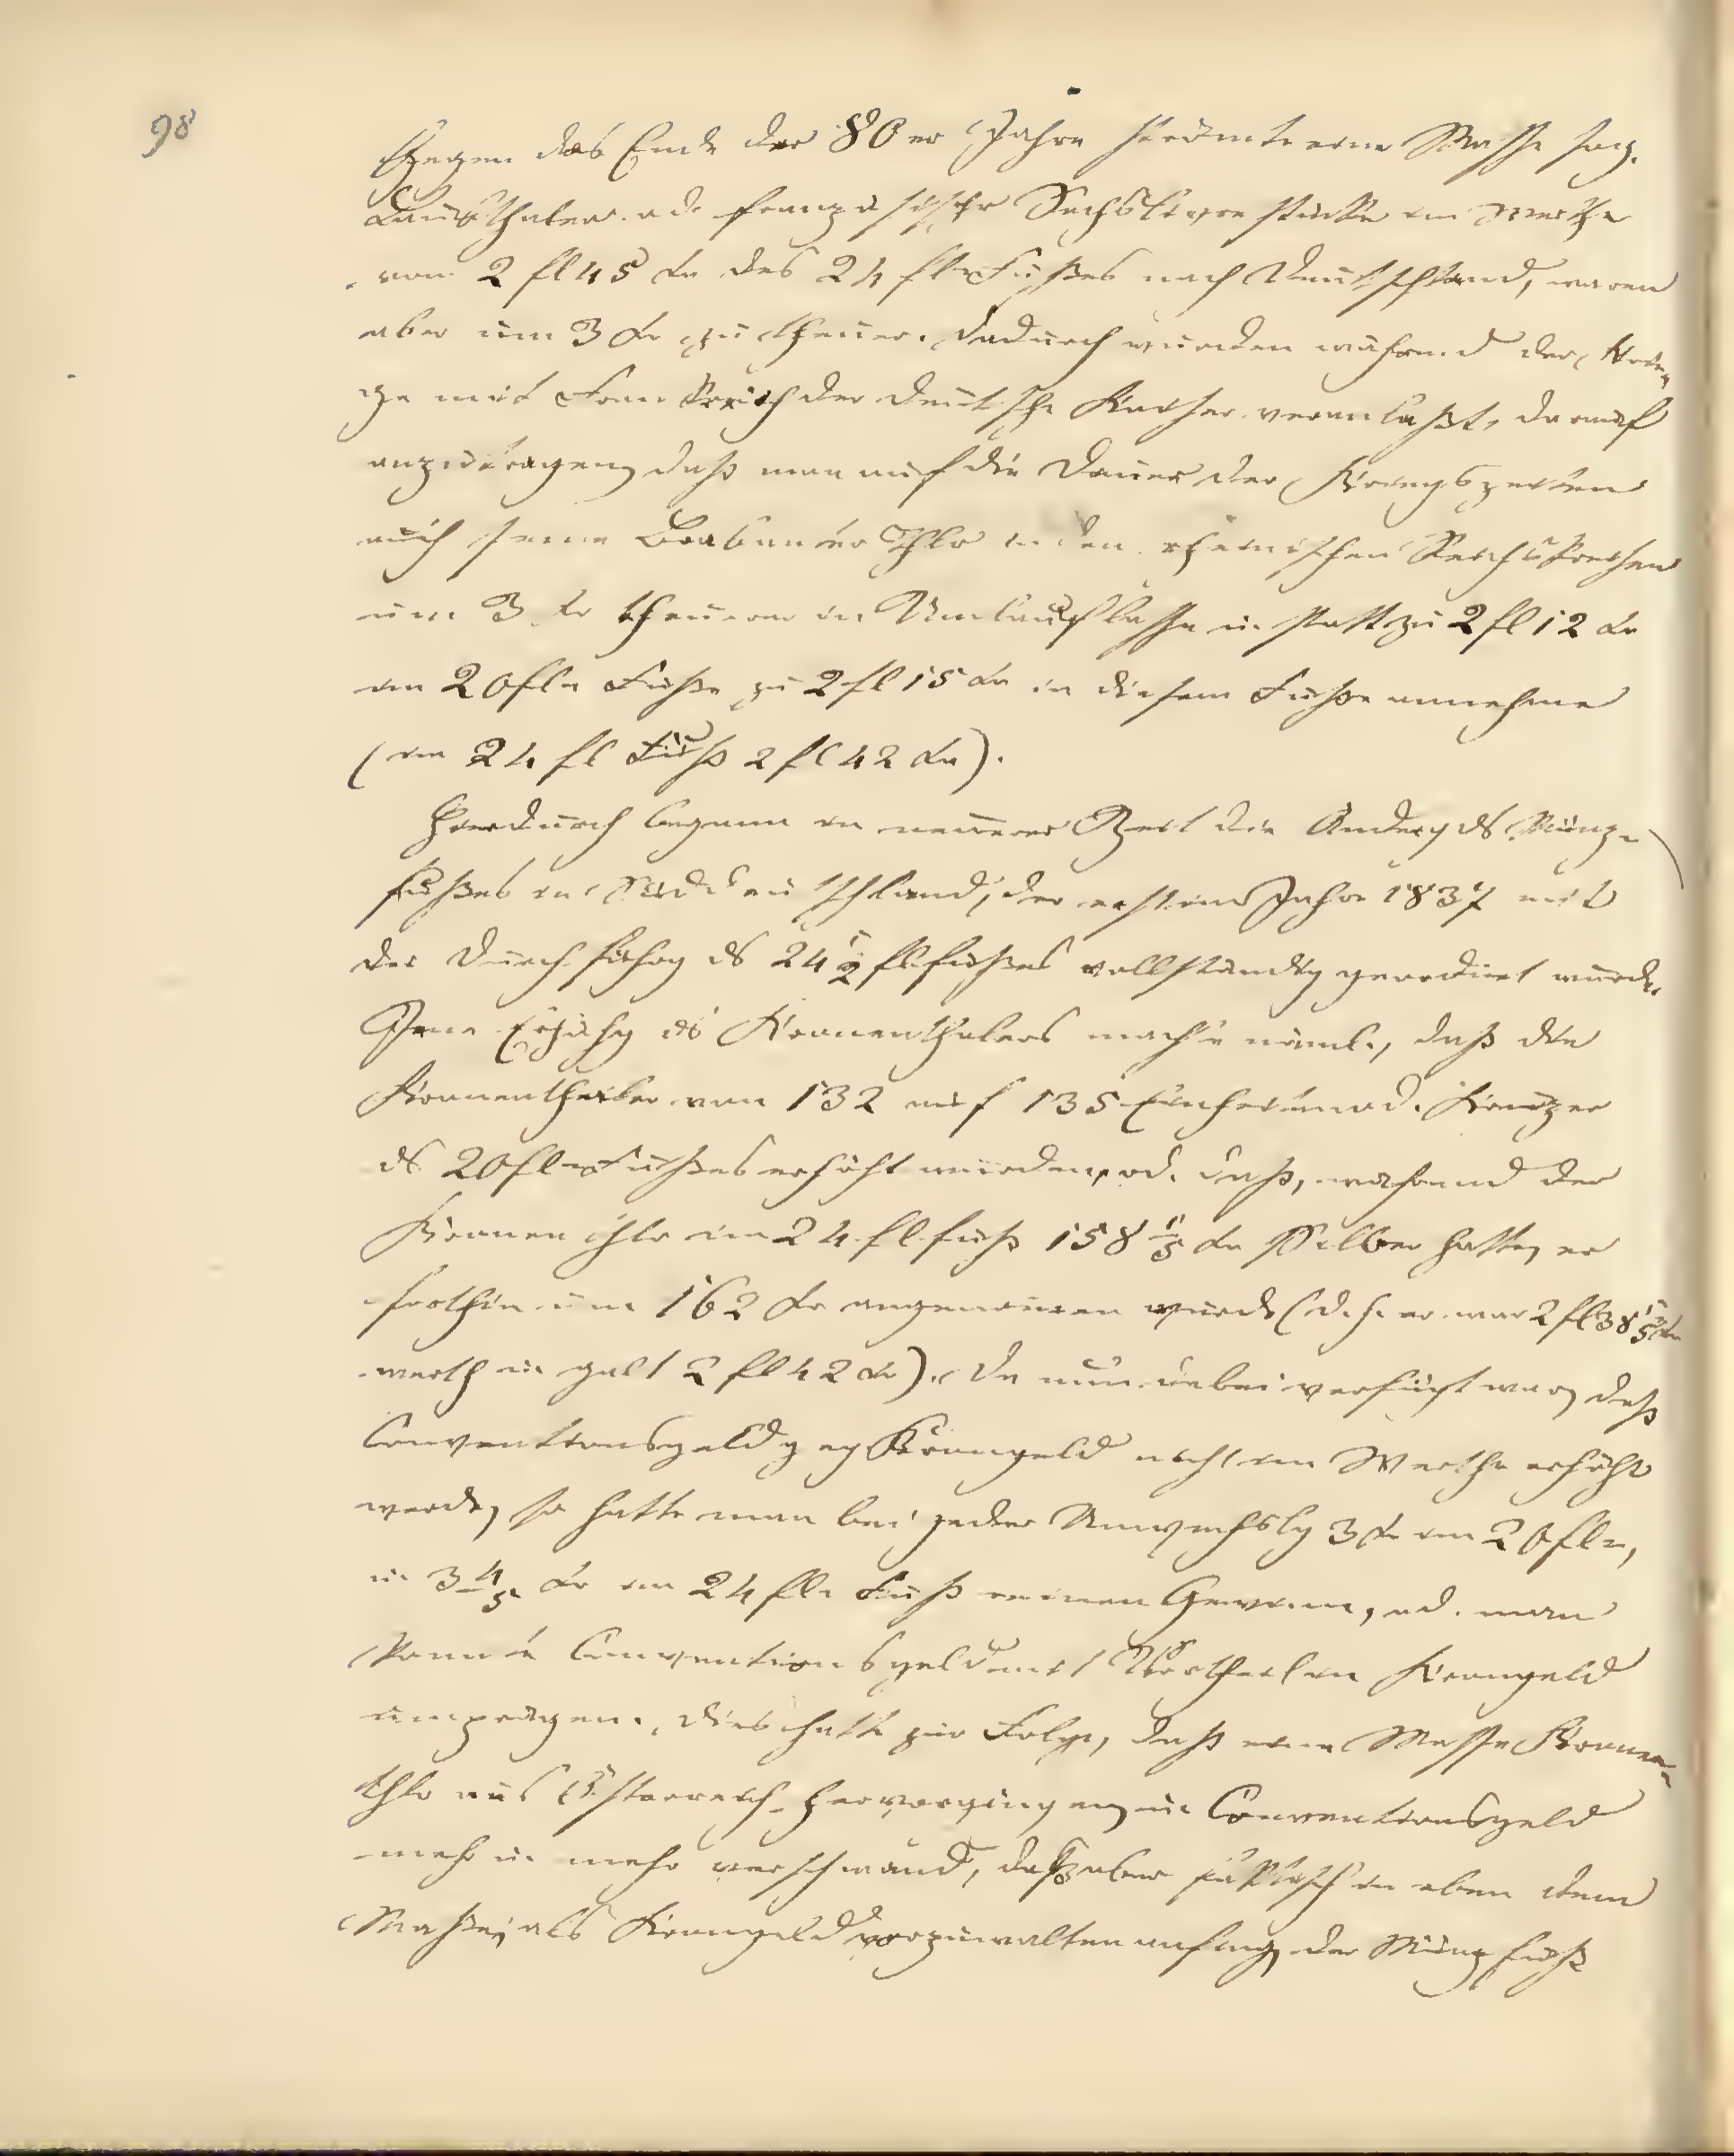 98
Gegen das Ende der 80er Jahre strömte eine Masse sog.
Laubthaler od. französischer Sechslivrestücke im Werthe
von 2 fl 45 Kr des 24 fl-Fußes nach Deutschland, waren
aber um 3 Kr zu theuer. Dadurch wurden während der Krie-
ge mit Frankreich der deutsche Kaiser veranlaßt, darauf
anzutragen, daß man auf die Dauer der Kriegszeiten
auch seine Brabanter Thlr in den rheinischen Reichskreisen
um 3 Kr theurer in Umlauf lasse u. statt zu 2 fl 12 Kr
im 20 fl- Fuße zu 2 fl 15 Kr in diesem Fuße annehme
(im 24 fl Fuß 2 fl 42 Kr).
Hierdurch begann in neuerer Zeit die Änderg ds Münz-
fußes in Süddeutschland, der erst im Jahre 1837 mit
der Durchführg ds 24 1/2 fl fußes vollständig geordnet wurde.
Jene Erhöhg ds Kronenthalers machte nämlich, daß die
Kronenthaler von 132 auf 135 Einheiten od. Kreuzer
ds 20 fl-Fußes erhöht wurden, od. daß, während der
Kronenthlr im 24 fl fuß 158 Kr Silber hatte, er
forthin um 162 Kr angenommen wurde (d. h. er war 2 fl 38
werth u. galt 2 fl 42 Kr). Da nun dabei verfügt war, daß
Conventionsgeld geg Krongeld nicht im Werthe erhöht
werde, so hatte man bei jeder Auswechslg 3 Kr im 20 fl-,
u. 3 4/5 Kr im 24 fl- Fuß reinen Gewinn, od. man
konnte Conventionsgeld mit Vortheil in Krongeld
umprägen. Dies hatte zur Folge, daß eine Masse Kronen-
thlr aus Österreich hervorgingen, u. Conventionsgeld
mehr u. mehr verschwand, daß aber faktisch in eben dem
Maße, als Krongeld vorzuwalten anfing, der Münzfuß